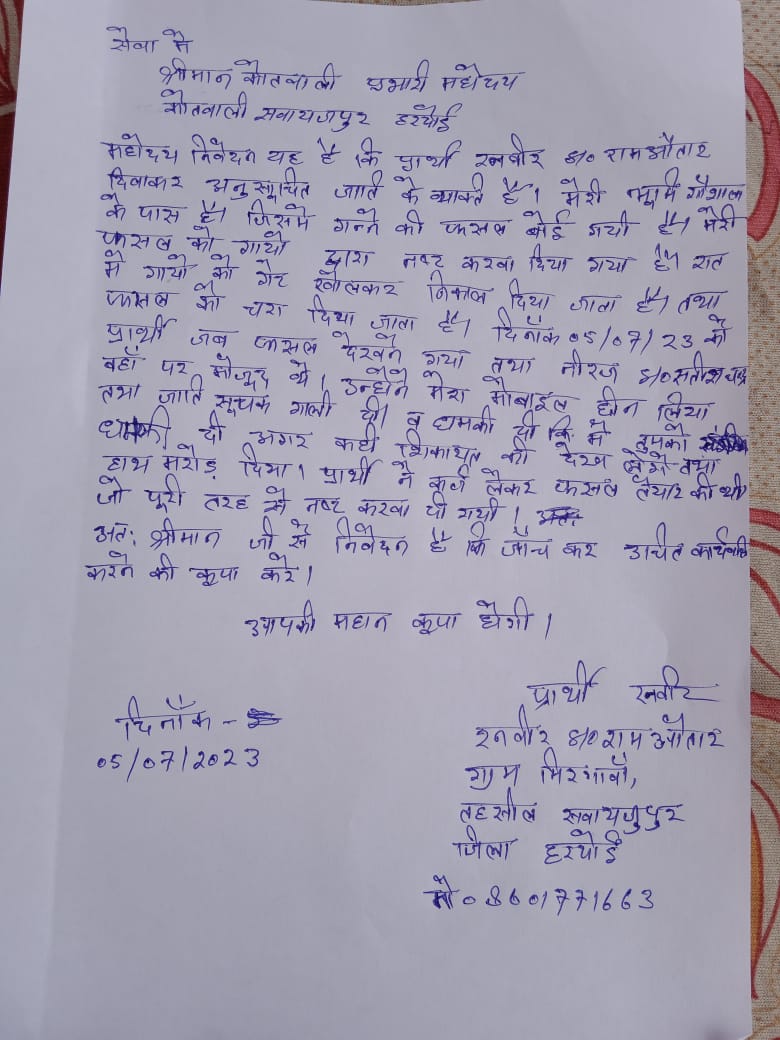 सेवा मे
श्रीमान कोतवाली प्रभारी महोदय
कोतवाली सवायजपुर हरदोई
महोदय निवेदन यह है कि प्रार्थी रनवीर s/o रामऔतार
दिवाकर अनुसूचित जाति के व्यक्ति है। मेरी भूमि गौशाला
के पास है। जिसमे गन्ने की फसल बोई गयी है। मेरी
फसल को गायो द्वारा नष्ट करवा दिया गया है। रात
मे गायो को गेट खोलकर निकाल दिया जाता है। तथा
फसल को चरा दिया जाता है। दिनाँक 05/07/23 को
प्रार्थी जब फसल देखने गया तथा नीरज s/o सतीश चन्द्र
वहाँ पर मौजूद थे। उन्होने मेरा मोबाइल छीन लिया
तथा जाति सूचक गाली दी। व धमकी दी कि मे तुमको
दी अगर कही शिकायत की देख लेगे तथा
हाथ मरोड़ दिया। प्रार्थी ने कर्ज लेकर फसल तैयार की थी
जो पूरी तरह से नष्ट करवा दी गयी।
अतः श्रीमान जी से निवेदन है कि जाँच कर उचित कार्यवाही
करने की कृपा करे।
आपकी महान कृपा होगी।
प्रार्थी रनवीर
दिनाँक -
05/07/2023
रनवीर s/o राम औतार
ग्राम मिरगावाँ,
तहसील सवायजपुर
जिला हरदोई
मो० 8601771663